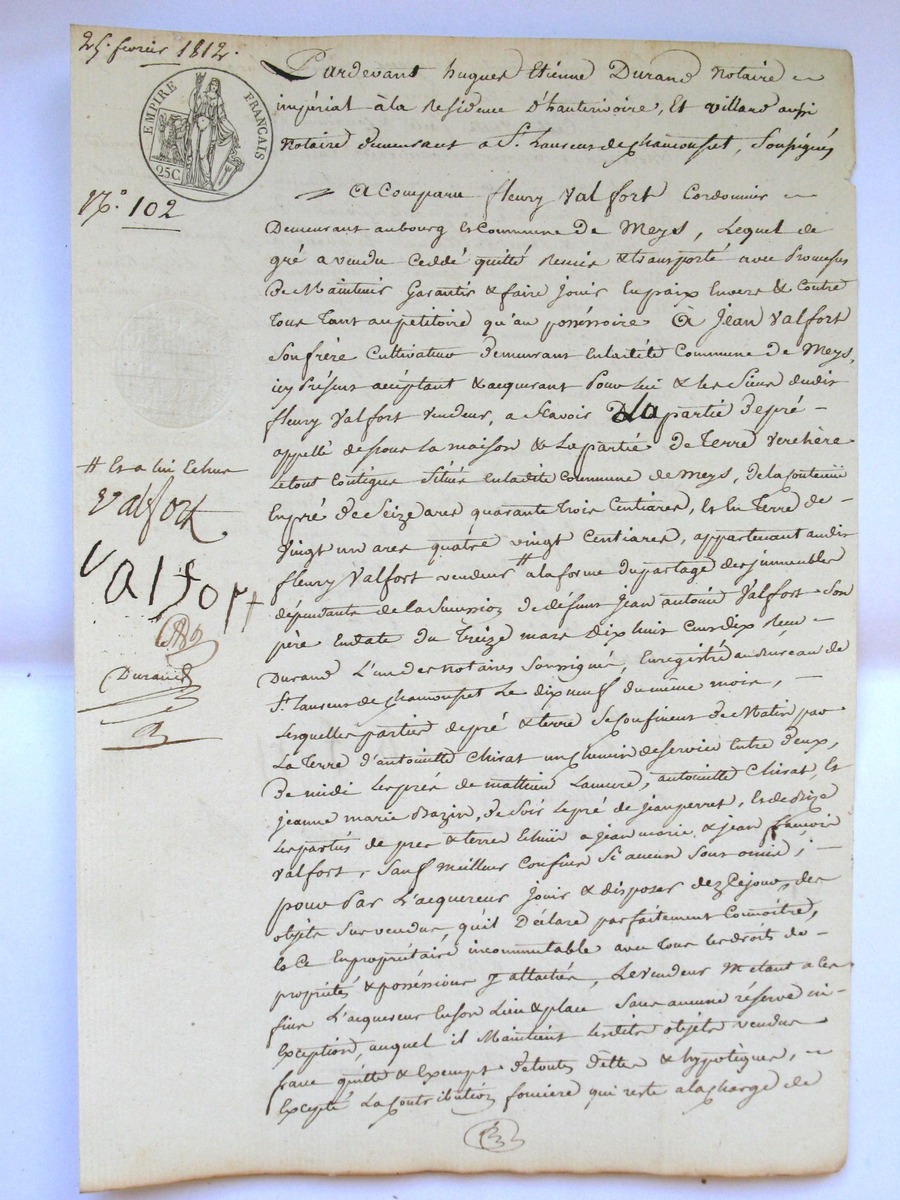 25. fevrier 1812.
EMPIRE FRANÇAIS
25C.
N.º 102
Pardevant hugues Etienne Durand Notaire
impérial à la Residence D'hauterivoire, Et villard aussi
Notaire demeurant a St. Laurent de chamousset, Soussignés
A Comparu fleury Valfort Cordonnier
Demeurant au bourg et Commune De Meys, Lequel de
gré a vendu Ceddé quitté Remis & transporté avec Promesses
De Maintenir Garantir & faire Jouir En paix Envers & Contre
tous tant au petitoire qu'au possessoire A Jean Valfort
Son frère Cultivateur demeurant En laditte Commune de Meys,
icy Présent acceptant & acquerant Pour lui & les Siens dudit
fleury Valfort vendeur, a Scavoir la partie de pré
appellé dessous la maison & La partie De Terre verchère
Le tout Contigus Situés En ladite Commune de Meys, De la Contenüe
En pré de Seize ares quarante trois Centiares, Et En Terre de
vingt un ares quatre vingt Centiares, appartenant audit
fleury Valfort vendeur # a la forme du partage des immeubles
dépendants de la Succession de défunt Jean antoine Valfort Son
père En date du Treize mars Dix huit Cent dix Reçu
Durand L'un des Notaires Soussignés, Enregistré au Bureau de
St. Laurent de chamousset Le dix neuf du même mois,
Lesquelles parties de pré & terre Se Confinent De Matin par
La Terre d'antoinette Chirat un chemin de service Entre deux,
De midi Les prés de mathieu Lameure, antoinette Chirat, Et
jeanne marie Bazin, de Soir Le pré de jean perret, Et de Bize
Les parties de prés & terre Echües a jean marie & jean francois
Valfort, Sauf meilleurs Confins Si aucun Sont omis;
pour Par L'acquereur Jouir & disposer dez Cejour, des
objets Survendus, qu'il Déclare parfaitement Connoitre,
En propriétaire incommutable avec tous les droits de
propriétés & possessions y attachés, Le vendeur Metant a les
fins L'acquereur En son Lieu & place Sans aucune réserve ni
Exception, auquel il Maintient Lesdits objets vendus
franc quitte & Exempt de toutes dettes & hypotèques,
Excepté La Contribution fonciere qui reste a la charge de
# Et a lui Echus
Valfort
Valfort
Durand